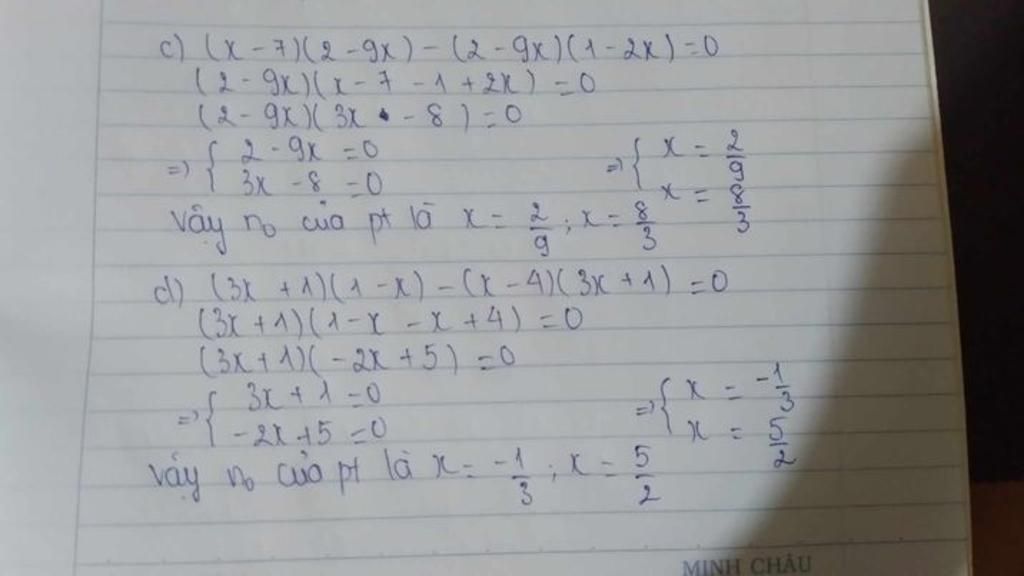 c) (x - 7)(2 - 9x) - (2 - 9x)(1 - 2x) = 0
(2 - 9x)(x - 7 - 1 + 2x) = 0
(2 - 9x)(3x - 8) = 0
=> { 2 - 9x = 0 => { x = 2/9
3x - 8 = 0 x = 8/3
Vậy no của pt là x = 2/9 ; x = 8/3
d) (3x + 1)(1 - x) - (x - 4)(3x + 1) = 0
(3x + 1)(1 - x - x + 4) = 0
(3x + 1)(-2x + 5) = 0
=> { 3x + 1 = 0 => { x = -1/3
-2x + 5 = 0 x = 5/2
Vậy no của pt là x = -1/3 ; x = 5/2
MINH CHÂU